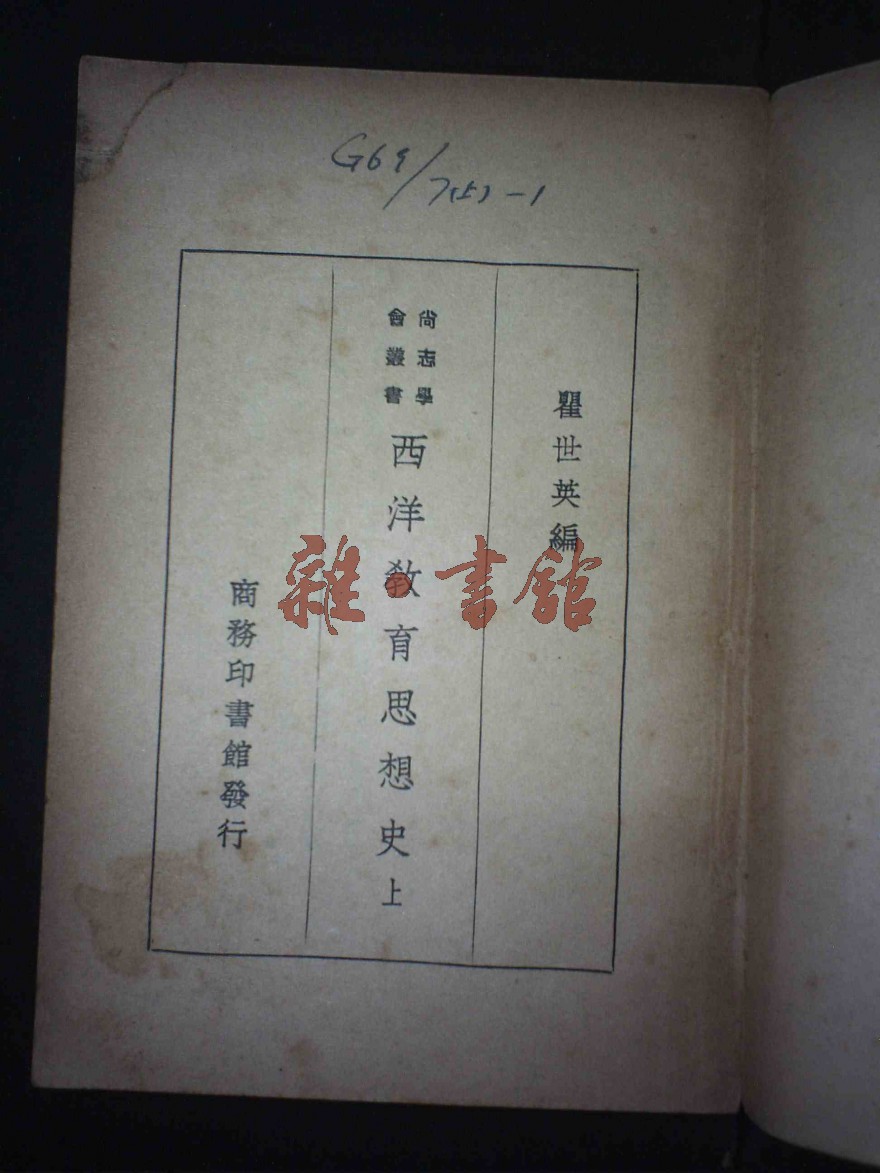 G69/7(上)-1
瞿世英編
尚志學
會叢書
西洋教育思想史上
商務印書館發行
雜·書館